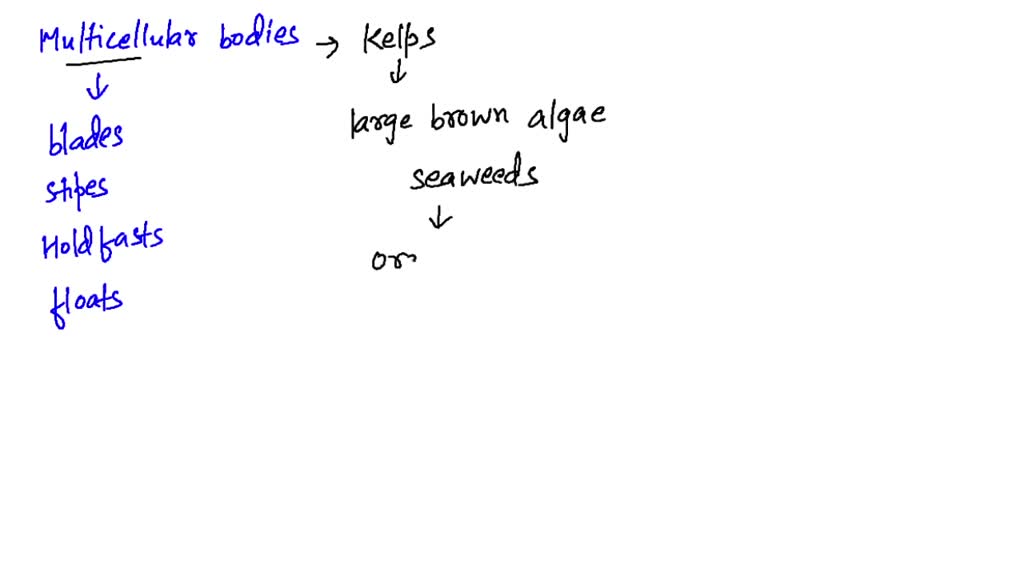 Multicellular bodies → Kelps
↓ ↓
blades
large brown algae
stipes
seaweeds
Holdfasts
↓
or
floats